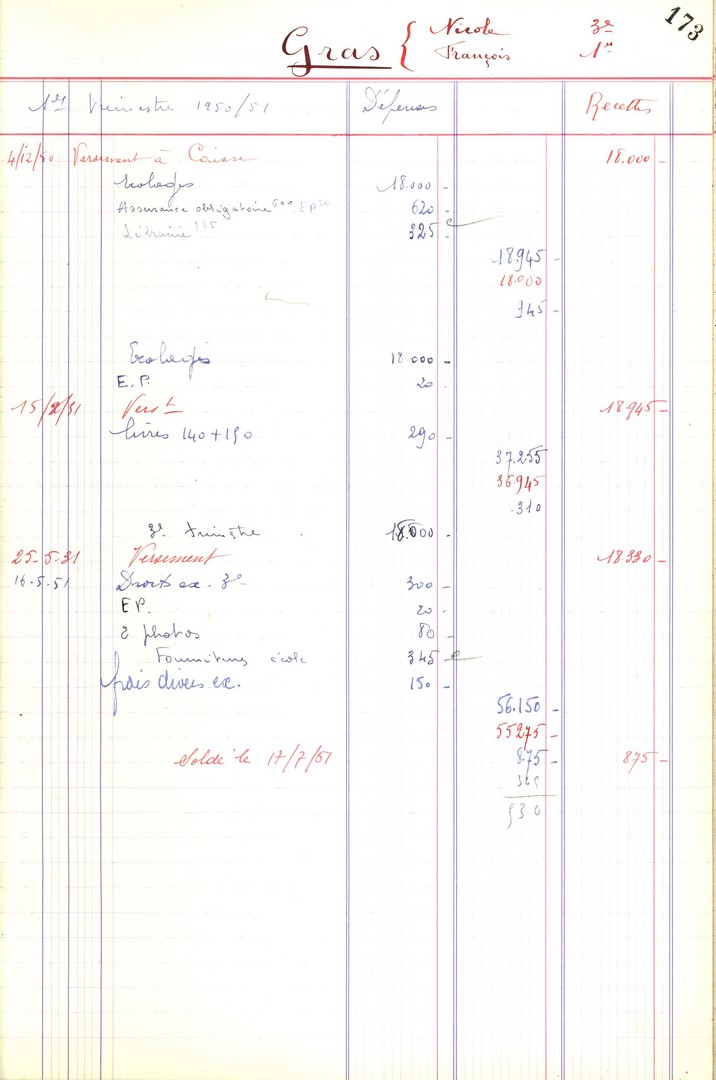 173
Gras { Nicole 3e
François 1re
1er trimestre 1950/51 Dépenses Recettes
4/12/50 Versement à Caisse 18.000 -
Ecolages 18.000 -
Assurance obligatoire 600 EP 20 620 -
Librairie 325 325 -
18945 -
18.000
945 -
Ecolages 18.000 -
E.P. 20 -
15/2/51 Verst 18945 -
livres 140+150 290 -
37.255
36.945
310
3e trimestre 18.000 -
25-5-51 Versement 18.330 -
16-5-51 Droits ex. 3e 300 -
EP. 20 -
2 photos 80 -
Fournitures école 345 -
frais divers ex. 150 -
56.150 -
55275 -
Solde le 17/7/51 875 - 875 -
930